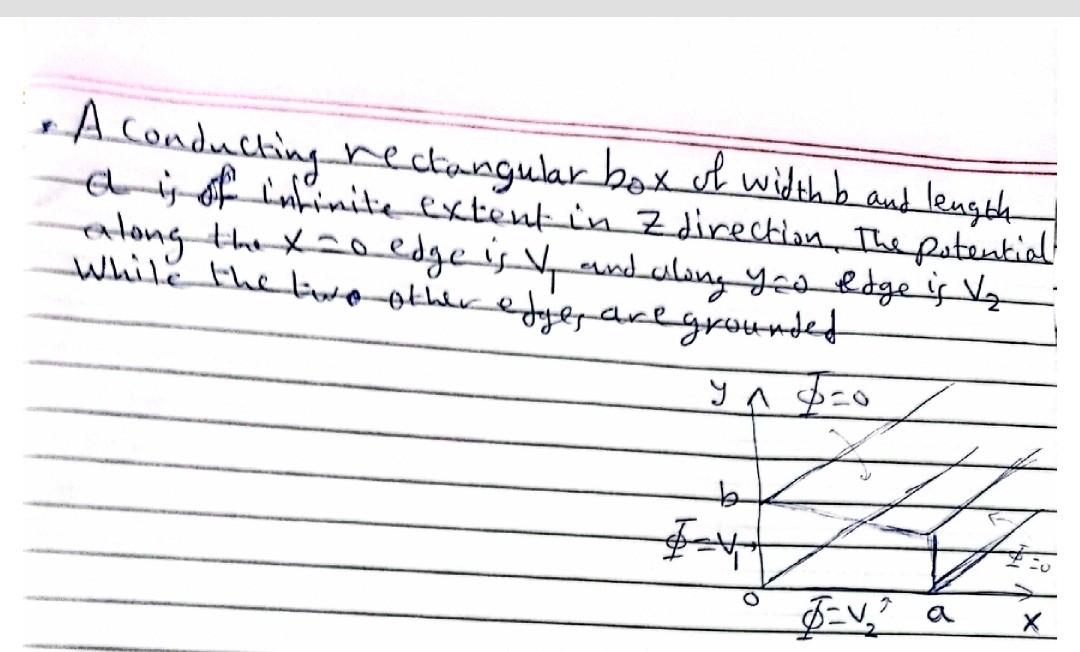 A conducting rectangular box of width b and length
a is of infinite extent in Z direction. The potential
along the x=0 edge is V₁ and along y=0 edge is V₂
While the two other edges are grounded
y Φ=0
b
Φ=V₁
Φ=0
0 Φ=V₂ a x